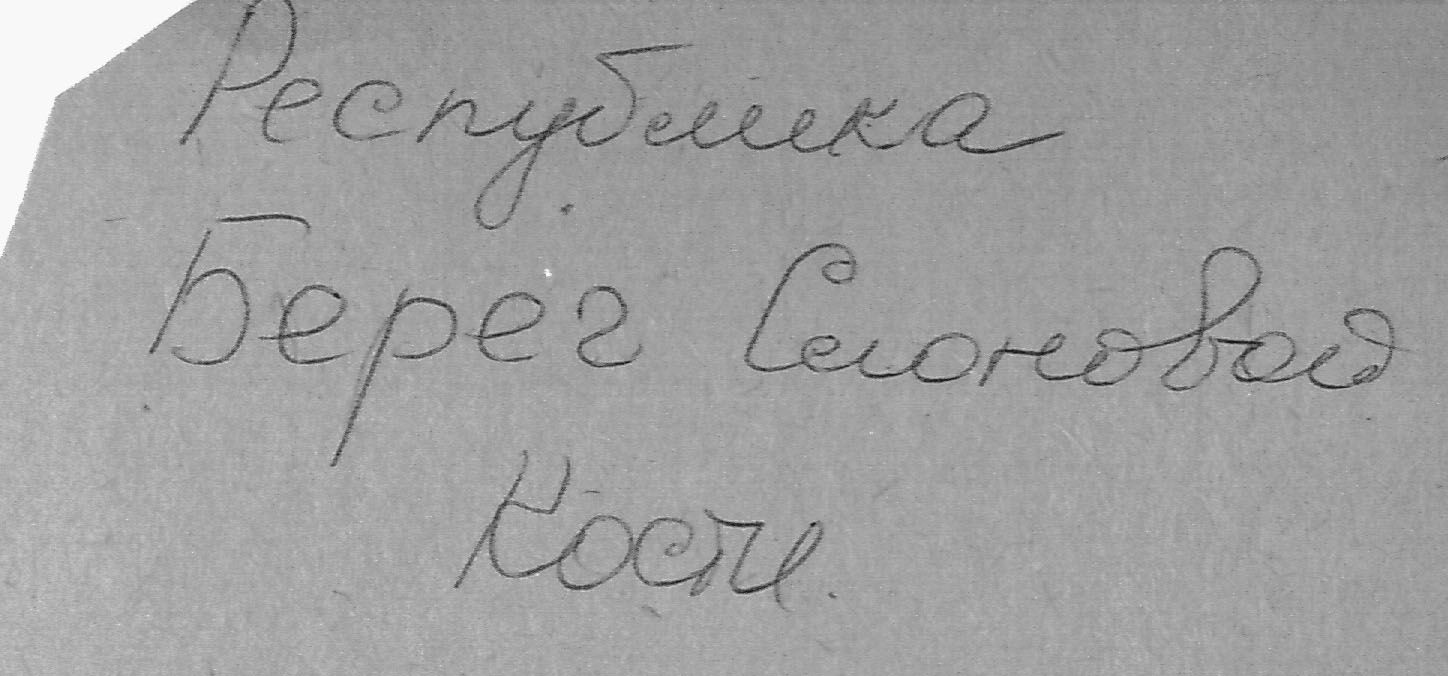 Республика
Берег Слоновой
Кости.